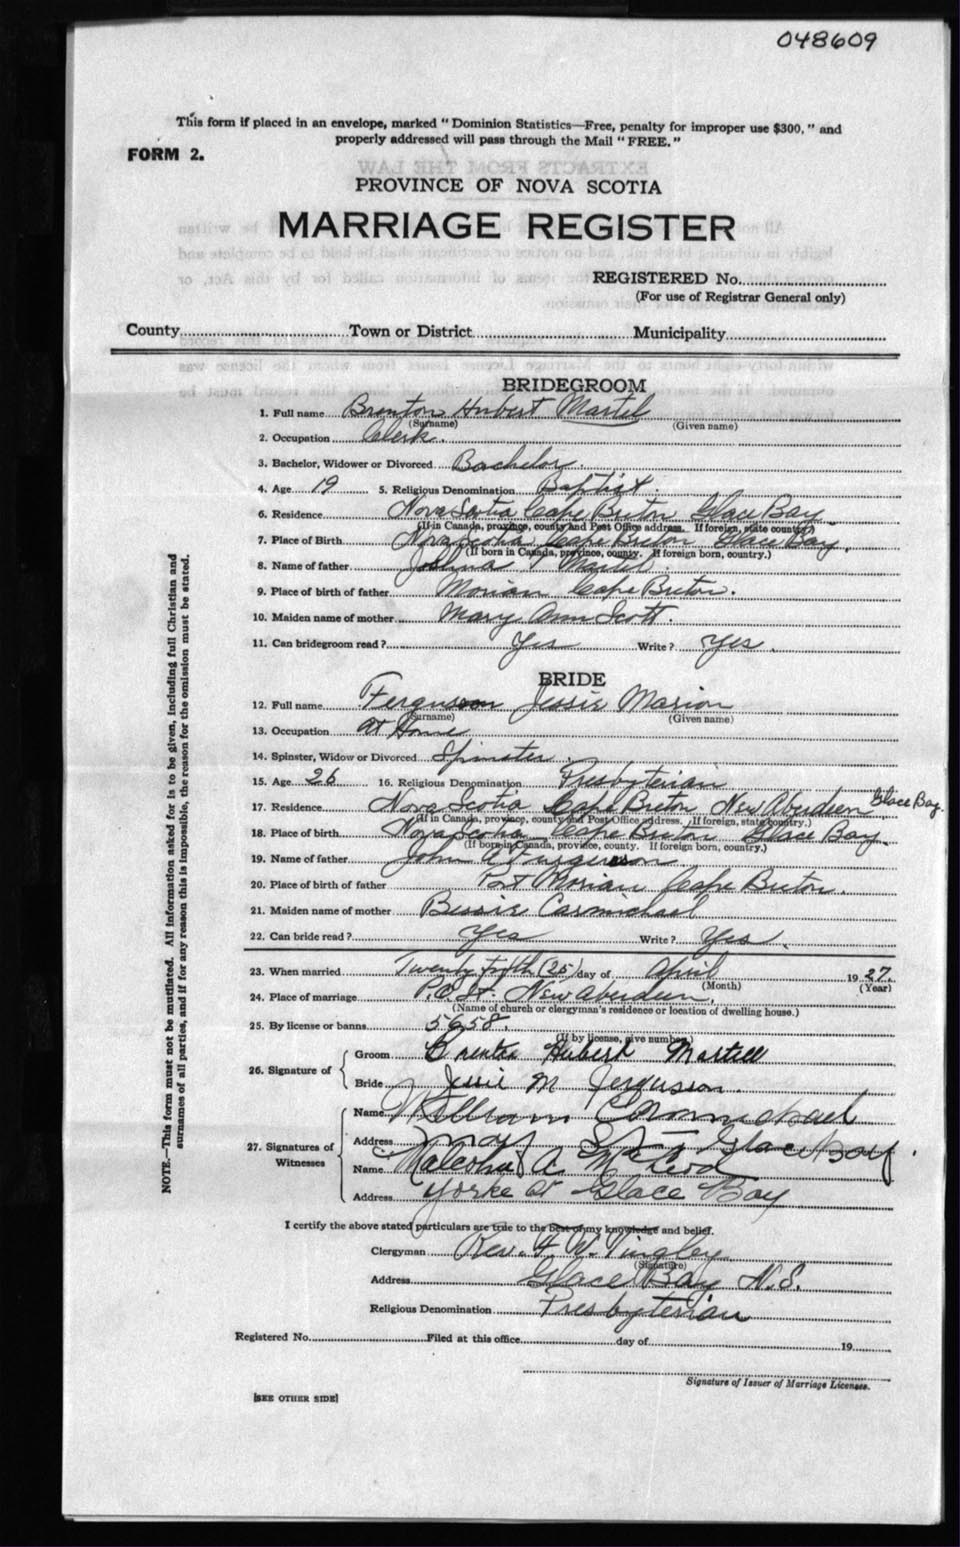 048609
This form if placed in an envelope, marked "Dominion Statistics—Free, penalty for improper use $300," and
properly addressed will pass through the Mail "FREE."
FORM 2.
PROVINCE OF NOVA SCOTIA
MARRIAGE REGISTER
REGISTERED No.
(For use of Registrar General only)
County Town or District Municipality
BRIDEGROOM
1. Full name Brenton Hubert Martel
(Surname) (Given name)
2. Occupation Clerk.
3. Bachelor, Widower or Divorced Bachelor.
4. Age 19 5. Religious Denomination Baptist.
6. Residence Nova Scotia Cape Breton Glace Bay
(If in Canada, province, county and Post Office address. If foreign, state country.)
7. Place of Birth Nova Scotia Cape Breton Glace Bay.
(If born in Canada, province, county. If foreign born, country.)
8. Name of father Martel.
9. Place of birth of father Morian Cape Breton.
10. Maiden name of mother Mary Ann Scott.
11. Can bridegroom read? Yes Write? Yes.
BRIDE
12. Full name Ferguson Jessie Marion
(Surname) (Given name)
13. Occupation At Home
14. Spinster, Widow or Divorced Spinster.
15. Age 26 16. Religious Denomination Presbyterian
17. Residence Nova Scotia Cape Breton New Aberdeen Glace Bay.
(If in Canada, province, county and Post Office address. If foreign, state country.)
18. Place of birth Nova Scotia Cape Breton Glace Bay.
(If born in Canada, province, county. If foreign born, country.)
19. Name of father John A Ferguson
20. Place of birth of father Port Morian Cape Breton.
21. Maiden name of mother Bessie Carmichael
22. Can bride read? Yes Write? Yes.
23. When married Twenty fifth (25) day of April 1927.
(Month) (Year)
24. Place of marriage New Aberdeen.
(Name of church or clergyman's residence or location of dwelling house.)
25. By license or banns 5658.
(If by license, give number.)
26. Signature of
Groom Brenton Hubert Martell
Bride Jessie M Ferguson.
27. Signatures of Witnesses
Name William Carmichael
Address May St Glace Bay.
Name Malcolm A. McLeod
Address Yorke St Glace Bay
I certify the above stated particulars are true to the best of my knowledge and belief.
Clergyman Rev. F. W. Tingley
(Signature)
Address Glace Bay N.S.
Religious Denomination Presbyterian
Registered No. Filed at this office day of 19
Signature of Issuer of Marriage Licenses.
[SEE OTHER SIDE]
NOTE.—This form must not be mutilated. All information asked for is to be given, including full Christian and
surnames of all parties, and if for any reason this is impossible, the reason for the omission must be stated.